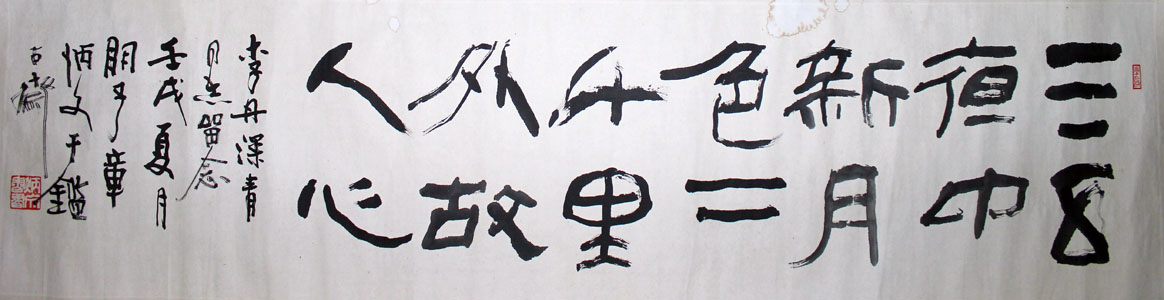 三五
夜中
新月
色二
千里
外故
人心
李丹深青
留念
壬戌夏月
章
炳文于